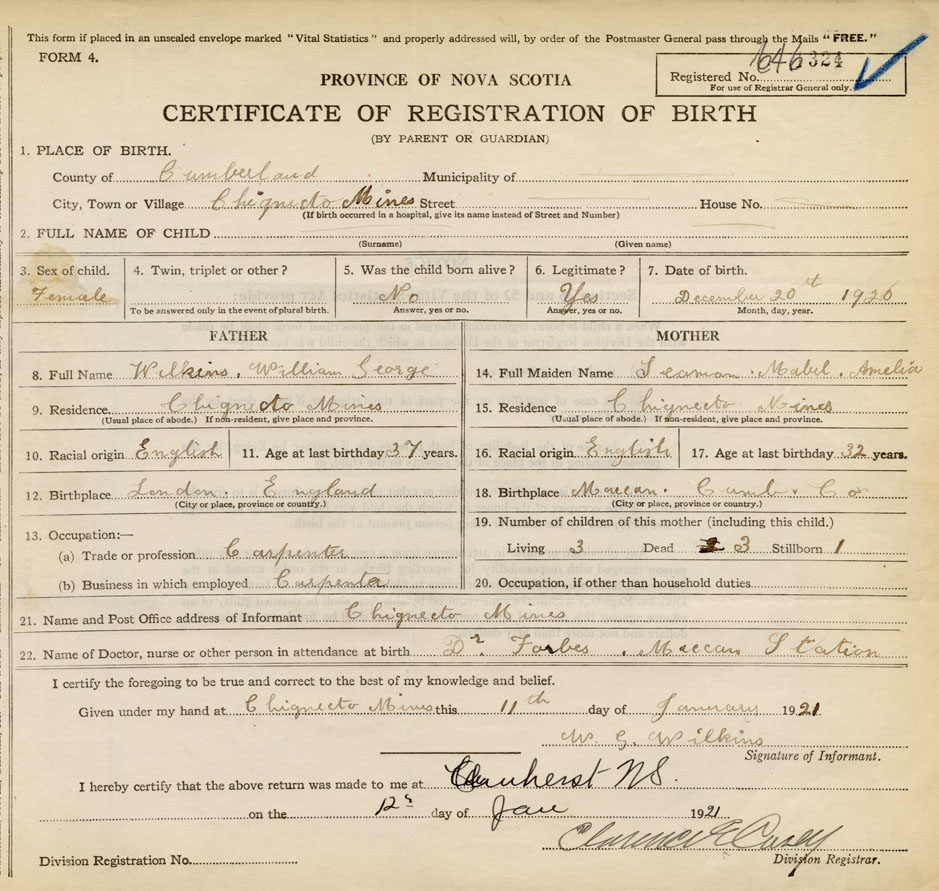 This form if placed in an unsealed envelope marked "Vital Statistics" and properly addressed will, by order of the Postmaster General pass through the Mails "FREE."
FORM 4.
646324
Registered No.
For use of Registrar General only.
PROVINCE OF NOVA SCOTIA
CERTIFICATE OF REGISTRATION OF BIRTH
(BY PARENT OR GUARDIAN)
1. PLACE OF BIRTH.
County of Cumberland Municipality of
City, Town or Village Chignecto Mines Street House No.
(If birth occurred in a hospital, give its name instead of Street and Number)
2. FULL NAME OF CHILD
(Surname) (Given name)
3. Sex of child. 4. Twin, triplet or other? 5. Was the child born alive? 6. Legitimate? 7. Date of birth.
Female No Yes December 20th
To be answered only in the event of plural birth. Answer, yes or no. Answer, yes or no. Month, day, year.
FATHER
8. Full Name Wilkins, William George
9. Residence. Chignecto Mines
(Usual place of abode.) If non-resident, give place and province.
10. Racial origin English 11. Age at last birthday 37 years.
12. Birthplace London. England
(City or place, province or country.)
13. Occupation:—
(a) Trade or profession Carpenter
(b) Business in which employed Carpenter
MOTHER
14. Full Maiden Name Seaman. Mabel. Amelia
15. Residence Chignecto Mines
(Usual place of abode.) If non-resident, give place and province.
16. Racial origin English 17. Age at last birthday 32 years.
18. Birthplace Maccan. Cumb. Co
(City or place, province or country.)
19. Number of children of this mother (including this child.)
Living 3 Dead 3 Stillborn 1
20. Occupation, if other than household duties
21. Name and Post Office address of Informant Chignecto Mines
22. Name of Doctor, nurse or other person in attendance at birth Dr. Forbes. Maccan Station
I certify the foregoing to be true and correct to the best of my knowledge and belief.
Given under my hand at Chignecto Mines this 11th day of January 1921.
W. G. Wilkins
Signature of Informant.
I hereby certify that the above return was made to me at Amherst NS.
on the day of Jan 1921
Clarence E Casey
Division Registrar.
Division Registration No.